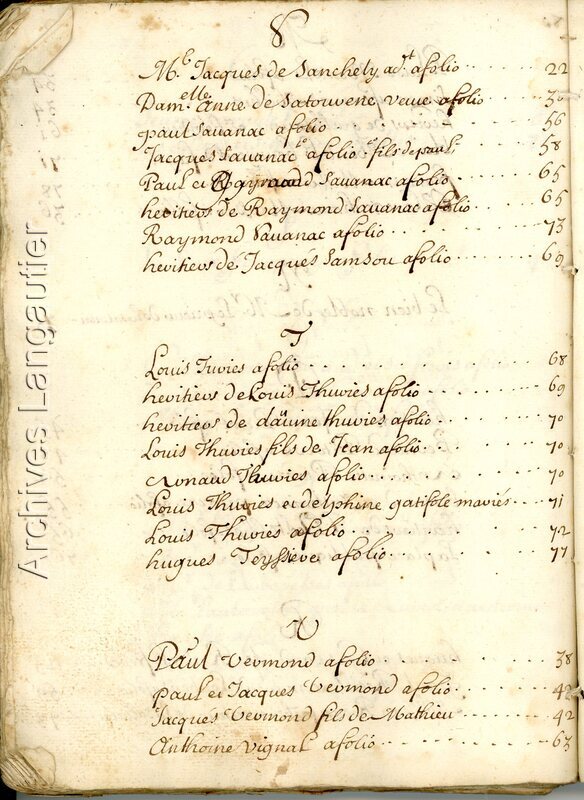 S
Mr. Jacques de Sanchely adt. afolio 22
Damelle anne de Satouvene veuve afolio 30
paul Sauanac afolio 56
Jacques Sauanac afolio fils de paul 58
Paul et Raymond Sauanac afolio 65
heritiers de Raymond Sauanac afolio 65
Raymond Sauanac afolio 73
heritiers de Jacques Samsou afolio 69
T
Louis Tuvies afolio 68
heritiers de Louis Thuvies afolio 69
heritiers de thuvies afolio 70
Louis Thuvies fils de Jean afolio 70
Arnaud Thuvies afolio 70
Louis Thuvies et delphine gatifole mariés 71
Louis Thuvies afolio 72
hugues Teyssere afolio 77
V
Paul Vermond afolio 38
paul et Jacques Vermond afolio 42
Jacques Vermond fils de Mathieu 42
Anthoine vignal afolio 63
Archives Langautier